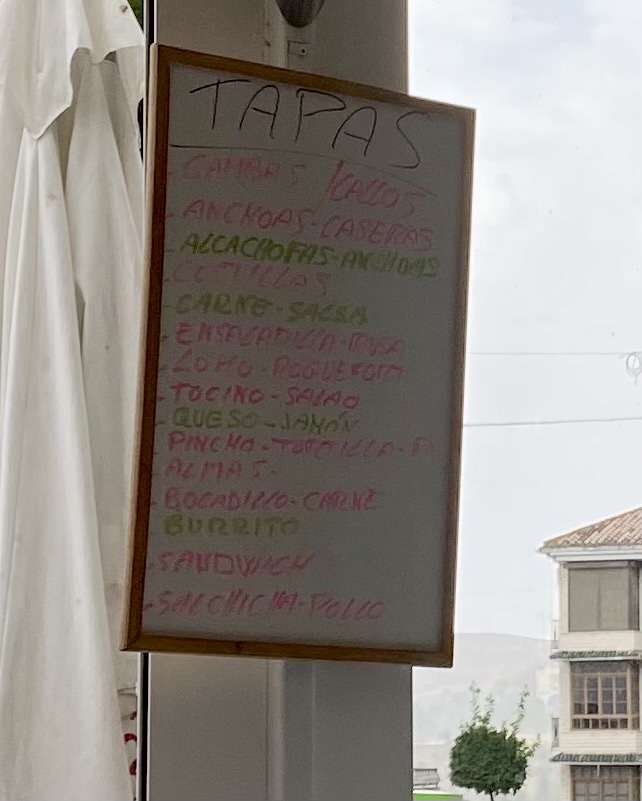 TAPAS
- GAMBAS / CALLOS
- ANCHOAS-CASERAS
- ALCACHOFAS-ANCHOAS
- COSTILLAS
- CARNE-SALSA
- ENSALADILLA-RUSA
- LOMO-ROQUEFORT
- TOCINO-SALAO
- QUESO-JAMÓN
- PINCHO-TORTILLA-P
- ALMAS-
- BOCADILLO-CARNE
BURRITO
- SANDWICH
- SALCHICHA-POLLO